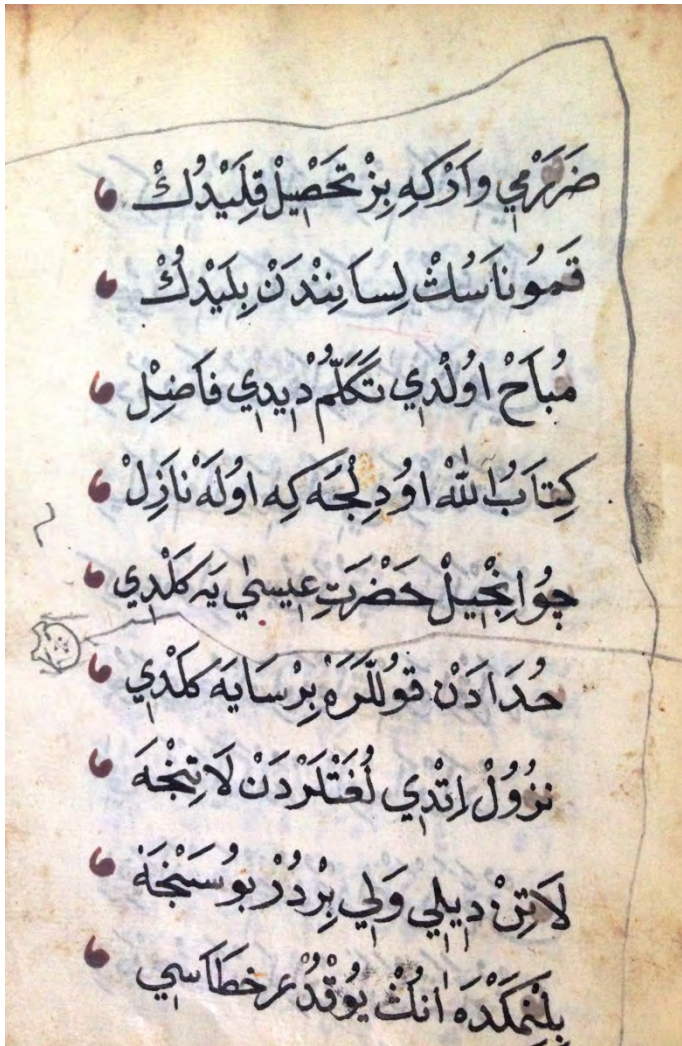 ضَرَرْمِي وَارْكِه بِزْ تَحْصِيلْ قِلَيْدُكْ
قَمُو نَاسُكْ لِسَانِنْدَنْ بِلَيْدُكْ
مُبَاحْ اوُلْدِي تَكَلُّمْ دِيدِي فَاضِلْ
كِتَابُ اللّٰهْ اوُدِلْجَه كِه اوُلَه نَازِلْ
چُو اِنْجِيلْ حَضْرَتِ عِيسٰى يَه كَلْدِي
حُدَادَنْ قوُللَّرَه بِرْ سَايَه كَلْدِي
نُزُولْ اِتْدِي لُغَتْلَرْدَنْ لَاتِنْجَه
لَاتِنْ دِيلِي وَلِي بِرْدُرْ بوُسَنْجَه
بِلِنْمَكْدَه اَنُكْ يوُقْدُرْ خَطَاسِي